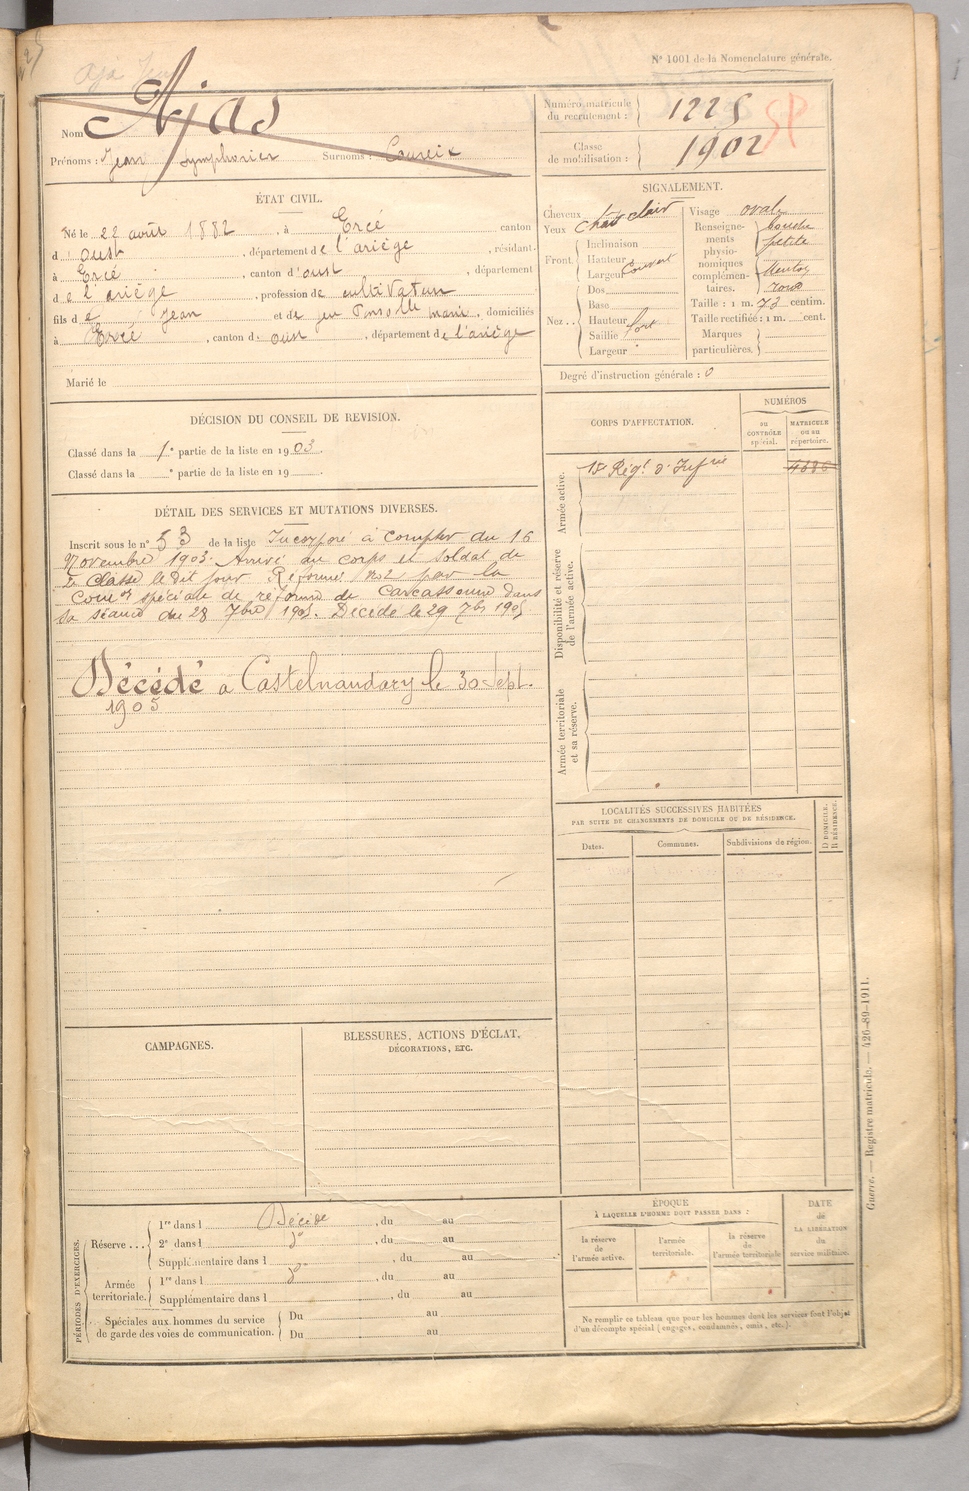 N° 1001 de la Nomenclature générale.
Nom Ajas
Prénoms : Jean Symphorien Surnoms : Coureix
Numéro matricule du recrutement : 1225
Classe de mobilisation : 1902
SP
ÉTAT CIVIL.
Né le 22 août 1882, à Ercé canton
d'oust, département de l'ariège, résidant
à Ercé, canton d'oust, département
de l'ariège, profession de cultivateur
fils de Jean et de marie, domiciliés
à Ercé, canton d. oust, département de l'ariège
Marié le
SIGNALEMENT.
Cheveux chat clair
Yeux
Front. Inclinaison
Hauteur
Largeur Couvert
Nez .. Dos
Base
Hauteur
Saillie fort
Largeur
Visage oval
Renseignements physionomiques complémentaires. bouche petite
Menton rond
Taille : 1 m. 73 centim.
Taille rectifiée : 1 m. cent.
Marques particulières.
Degré d'instruction générale : 0
DÉCISION DU CONSEIL DE REVISION.
Classé dans la 1e partie de la liste en 1903.
Classé dans la e partie de la liste en 19
CORPS D'AFFECTATION.
NUMÉROS
au CONTRÔLE spécial.
MATRICULE ou au répertoire.
Armée active.
Disponibilité et réserve de l'armée active.
Armée territoriale et sa réserve.
DÉTAIL DES SERVICES ET MUTATIONS DIVERSES.
Inscrit sous le n° 53 de la liste Incorporé à compter du 16
Novembre 1903. Arrivé au corps et soldat de
2e classe le dit jour. Réformé n°2 par la
Comon spéciale de réforme de Carcassonne dans
sa séance du 28 7bre 1905. Décédé le 29 7bre 1905
Décédé à Castelnaudary le 30 Sept.
1905
LOCALITÉS SUCCESSIVES HABITÉES
PAR SUITE DE CHANGEMENTS DE DOMICILE OU DE RÉSIDENCE.
Dates.
Communes.
Subdivisions de région.
D DOMICILE.
R RÉSIDENCE.
CAMPAGNES.
BLESSURES, ACTIONS D'ÉCLAT,
DÉCORATIONS, ETC.
PÉRIODES D'EXERCICES.
Réserve ... 1re dans l Décédé, du au
2e dans l do, du au
Supplémentaire dans l, du au
Armée territoriale. 1re dans l do, du au
Supplémentaire dans l, du au
Spéciales aux hommes du service de garde des voies de communication. Du au
Du au
ÉPOQUE
À LAQUELLE L'HOMME DOIT PASSER DANS :
la réserve de l'armée active.
l'armée territoriale.
la réserve de l'armée territoriale
DATE de LA LIBÉRATION du service militaire.
Ne remplir ce tableau que pour les hommes dont les services font l'objet
d'un décompte spécial (engagés, condamnés, omis, etc.).
Guerre. — Registre matricule. — 426-89-1911.